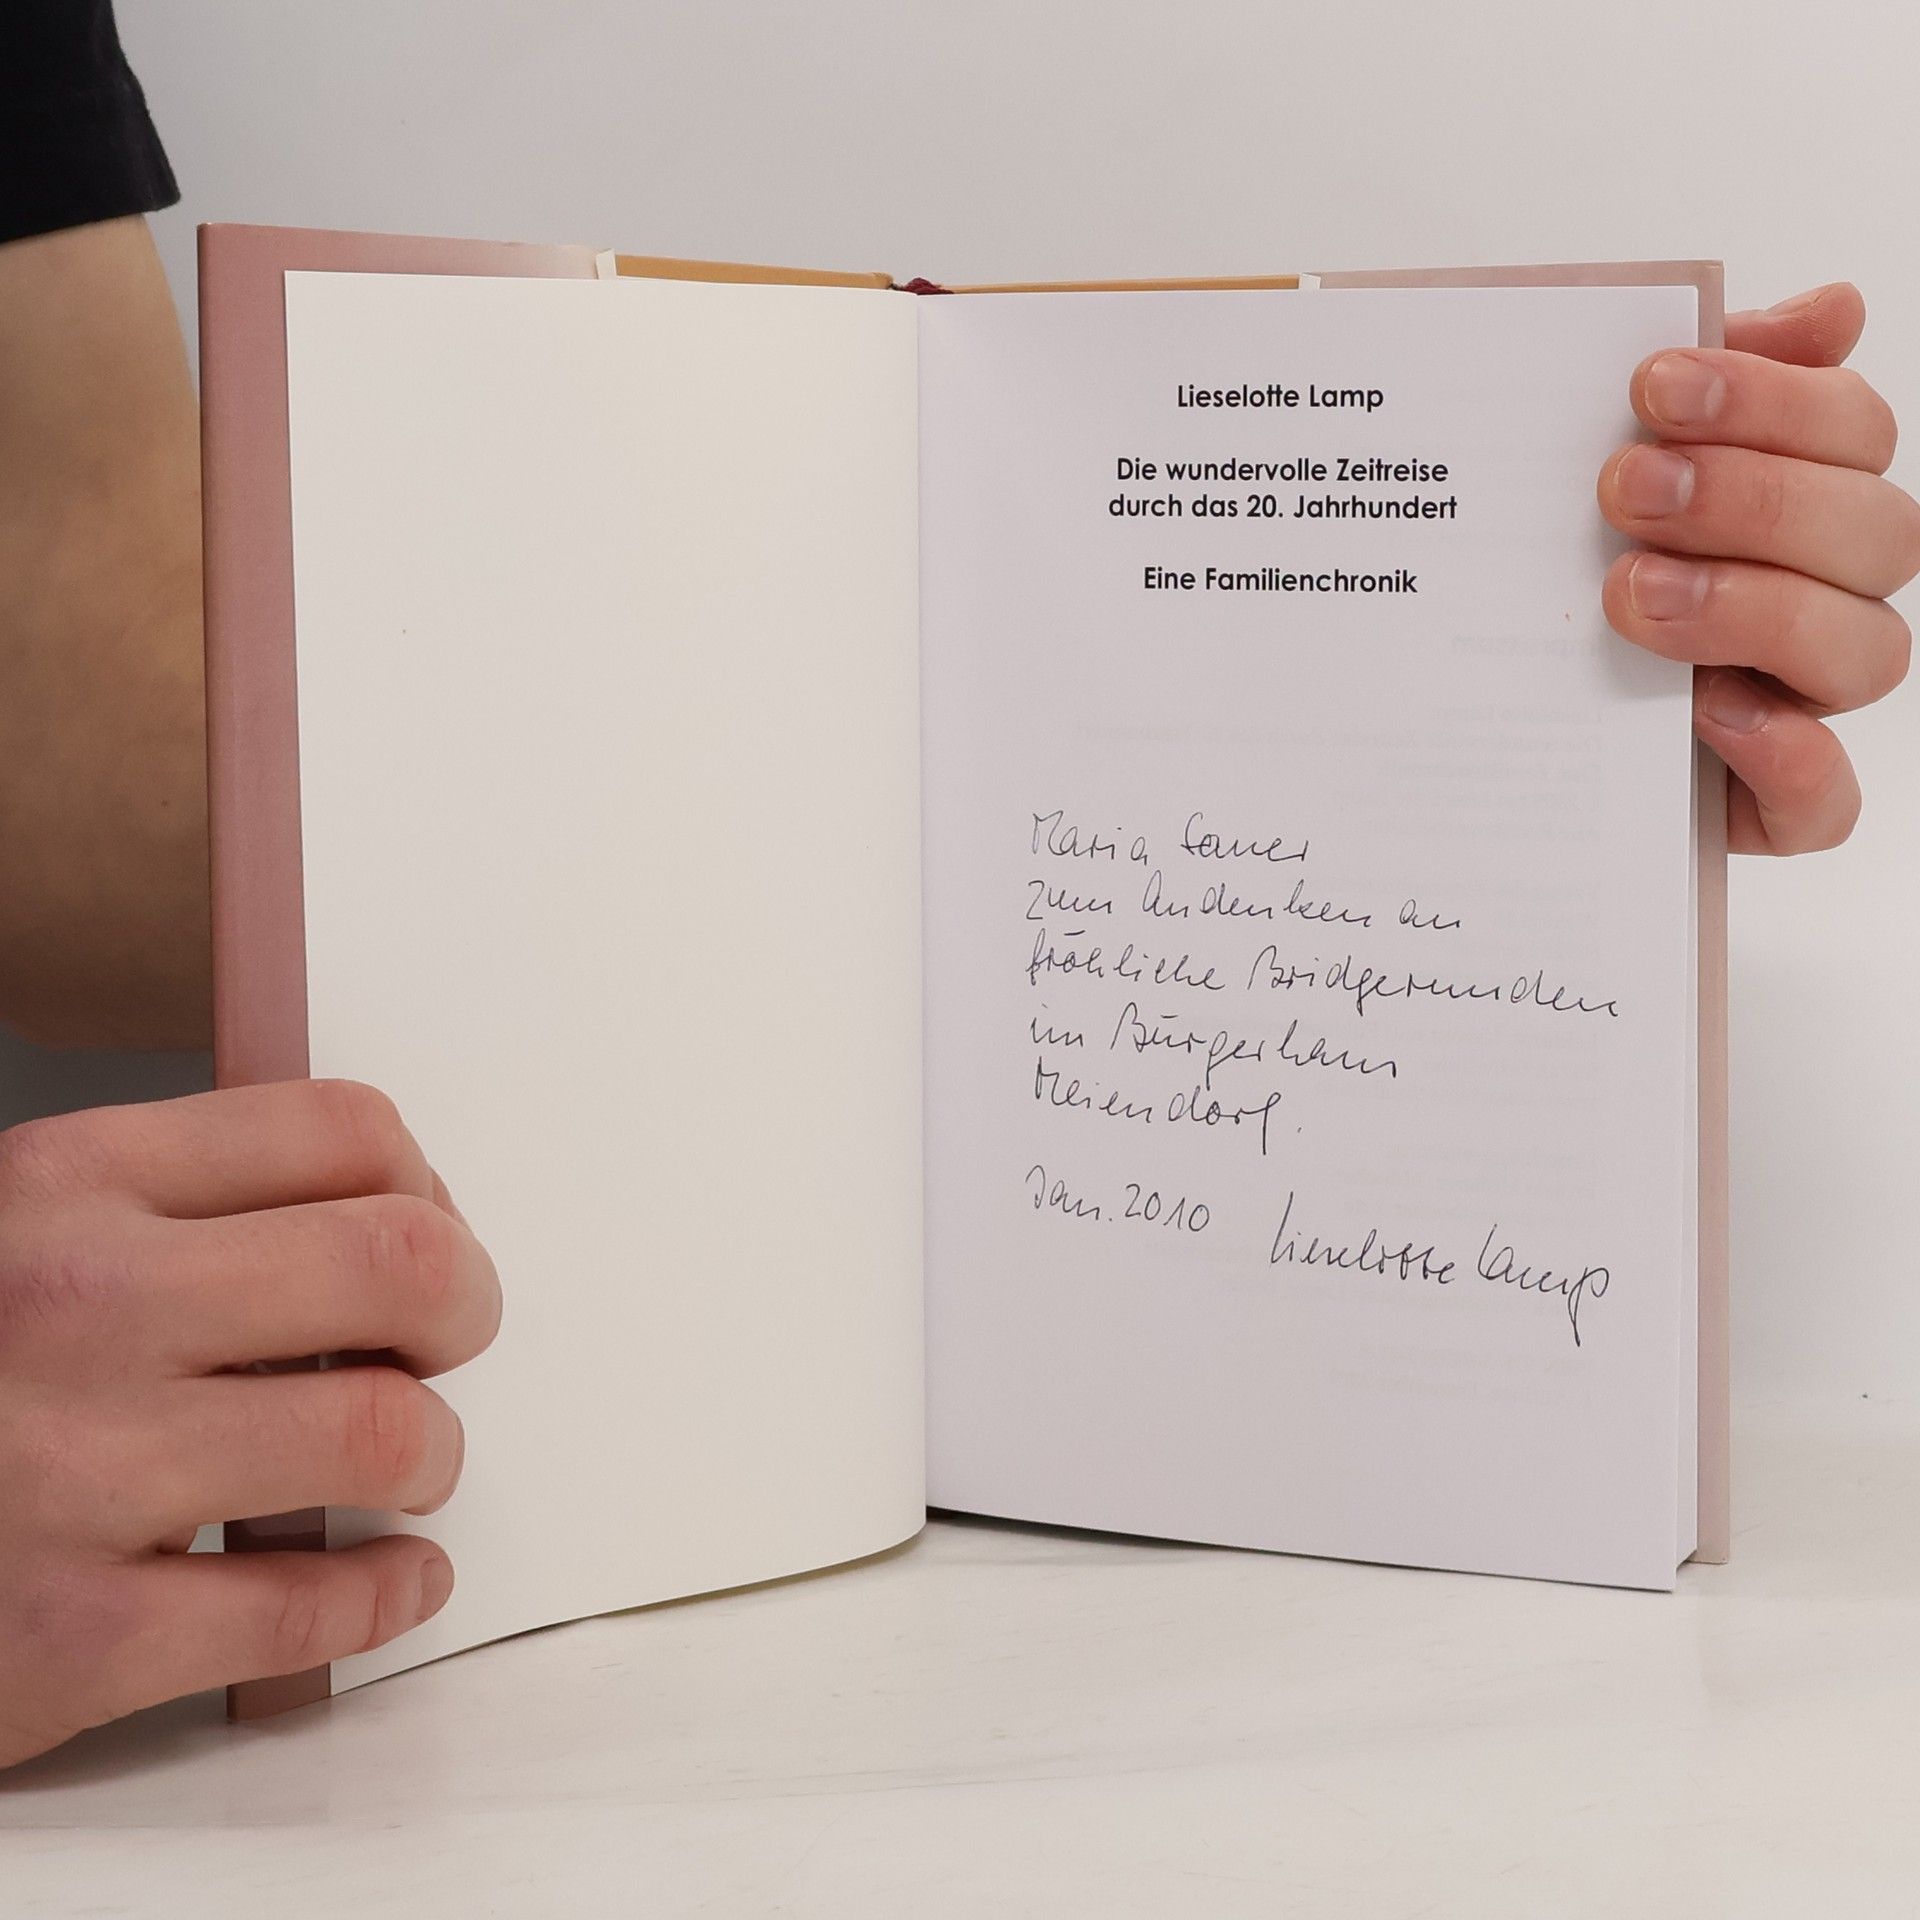 Lieselotte Lamp
Die wundervolle Zeitreise
durch das 20. Jahrhundert
Eine Familienchronik
Maria Sauer
zum Andenken an
fröhliche Bridgerunden
im Bürgerhaus
Meiendorf.
Jan. 2010 Lieselotte Lamp